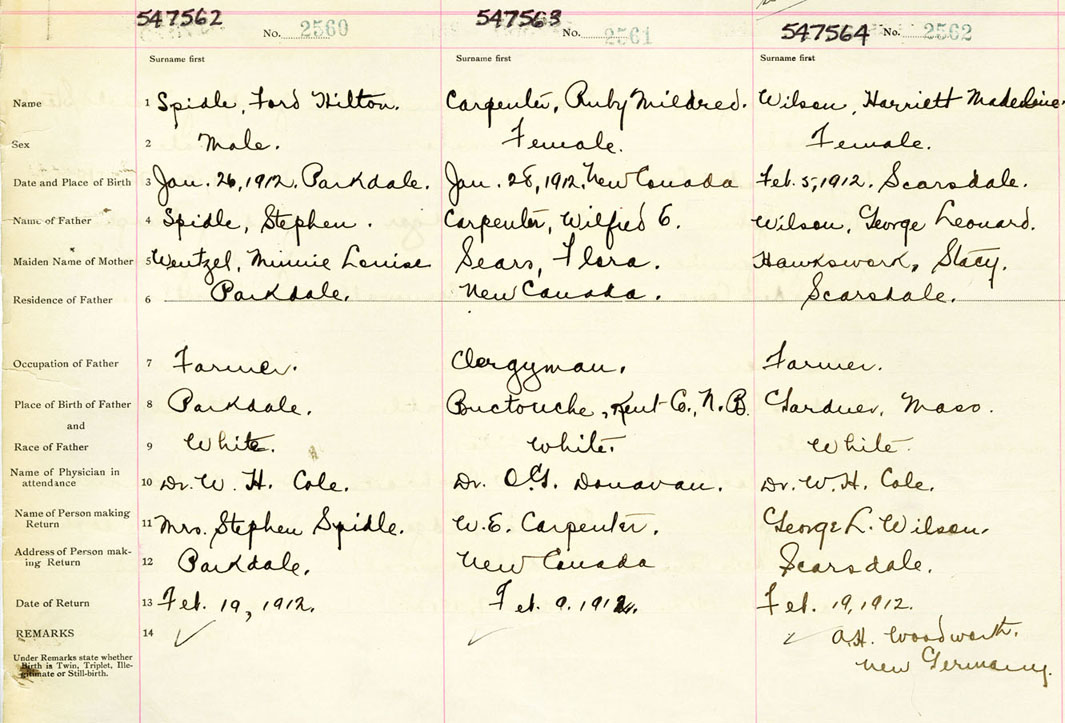 547562 547563 547564
No. 2560 No. 2561 No. 2562
Surname first Surname first Surname first
Name 1 Spidle, Ford Hilton. Carpenter, Ruby Mildred. Wilson, Harriett Madeleine
Sex 2 Male. Female. Female.
Date and Place of Birth 3 Jan. 26, 1912. Parkdale. Jan. 28, 1912. New Canada Feb. 5, 1912. Scarsdale.
Name of Father 4 Spidle, Stephen. Carpenter, Wilfred E. Wilson, George Leonard.
Maiden Name of Mother 5 Wentzel, Minnie Louise Sears, Flora. Hawkswork, Stacy.
Residence of Father 6 Parkdale. New Canada. Scarsdale.
Occupation of Father 7 Farmer. Clergyman. Farmer.
Place of Birth of Father 8 Parkdale. Buctouche, Kent Co., N.B. Gardner, Mass.
and
Race of Father 9 White. White. White.
Name of Physician in
attendance 10 Dr. W. H. Cole. Dr. Donavan. Dr. W. H. Cole.
Name of Person making
Return 11 Mrs. Stephen Spidle. W. E. Carpenter. George L. Wilson.
Address of Person mak-
ing Return 12 Parkdale. New Canada Scarsdale.
Date of Return 13 Feb. 19, 1912. Feb. 9. 1912. Feb. 19, 1912.
REMARKS 14 A.H. Woodworth.
New Germany.
Under Remarks state whether
Birth is Twin, Triplet, Ille-
gitimate or Still-birth.